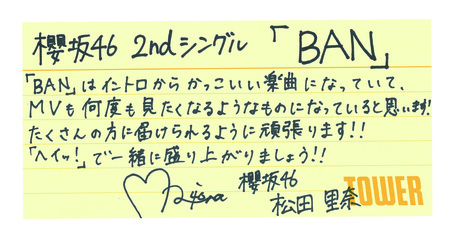 櫻坂46 2ndシングル 「BAN」
「BAN」はイントロからかっこいい楽曲になっていて、
MVも何度も見たくなるようなものになっていると思います!
たくさんの方に届けられるように頑張ります!!
「ヘイッ!」で一緒に盛り上がりましょう!!
Riena 櫻坂46
松田 里奈
TOWER